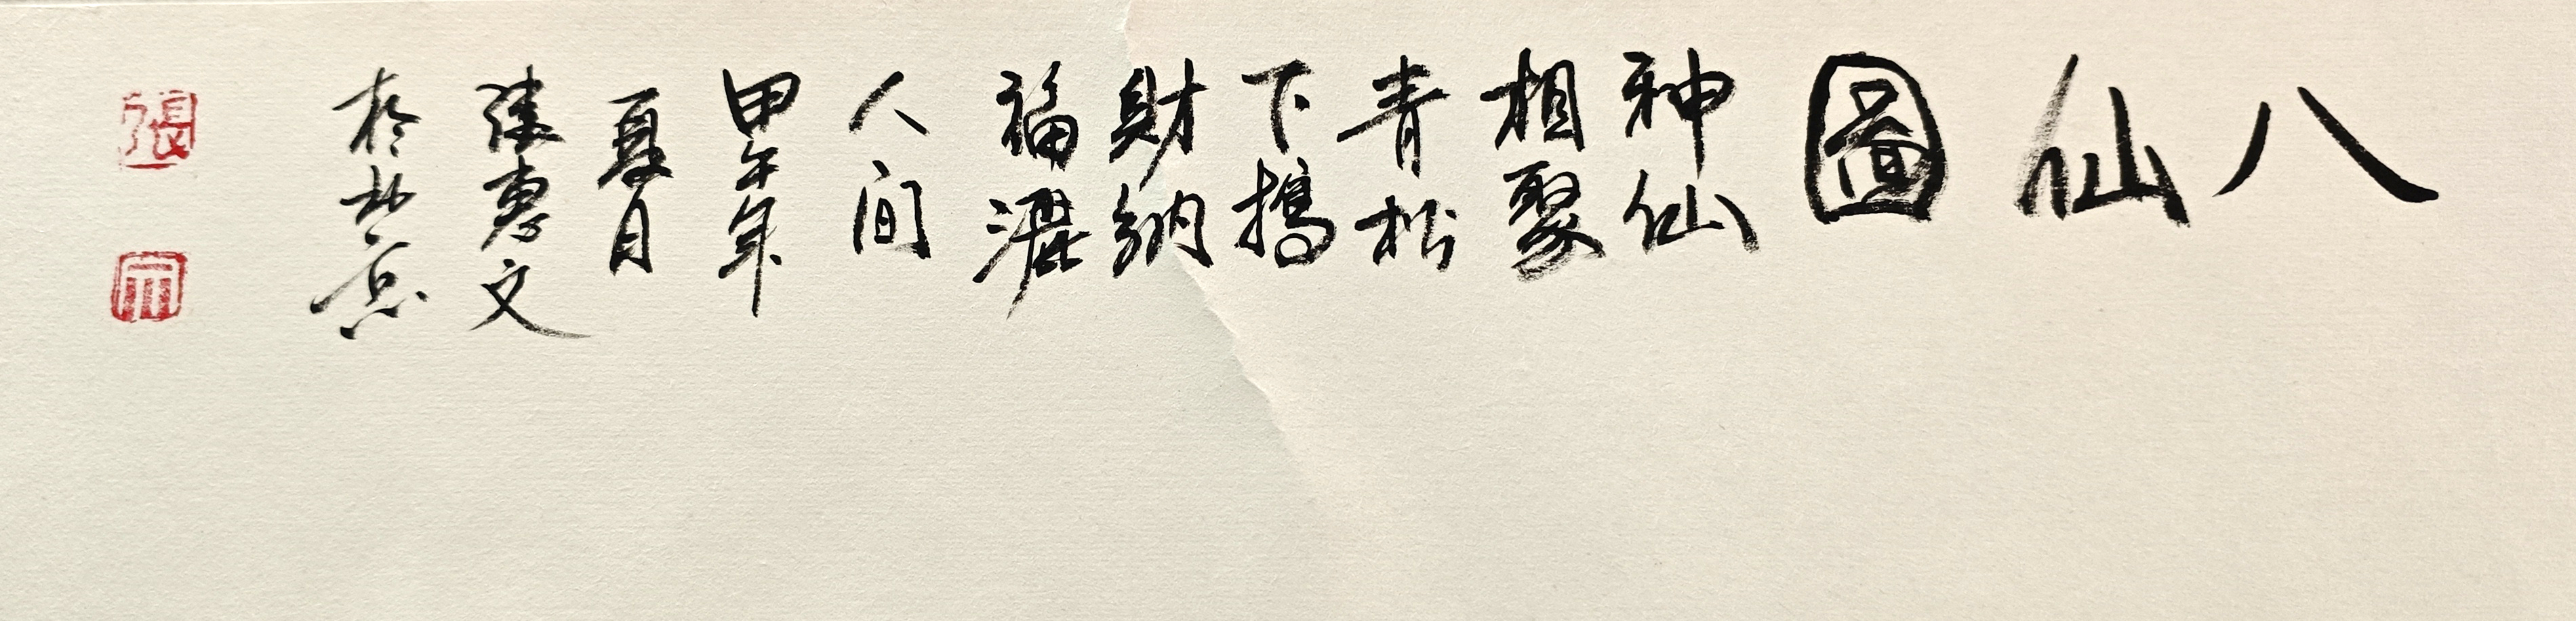 八仙圖
神仙
相聚
青松
下攜
財納
福灑
人间
甲午年
夏月
張惠文
於北京
張